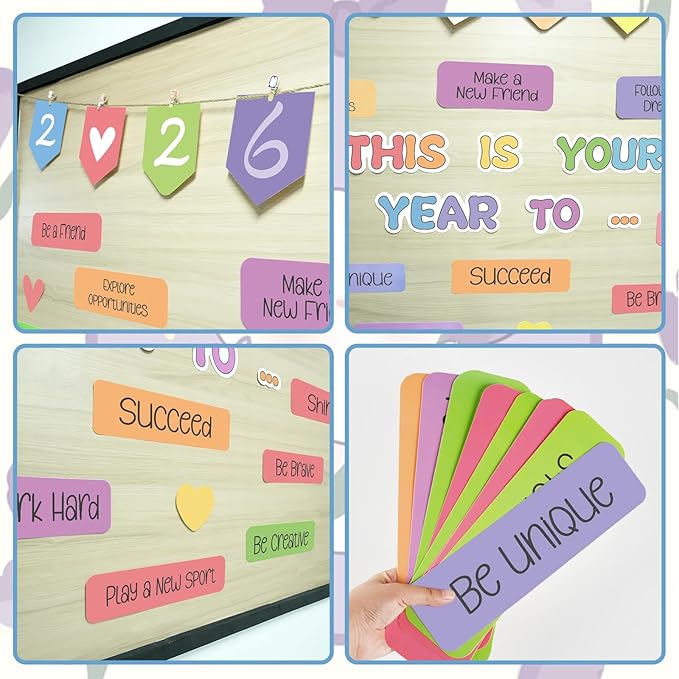 2 2 6
Be a Friend
Explore
Opportunities
Make a
New Frien
Make a
New Friend
Follo
Dre
THIS IS YOUR
YEAR TO ...
nique
Succeed
Be Bra
TO ...
Succeed
Shi
Be Brave
rk Hard
Be Creative
Play a New Sport
Be Unique